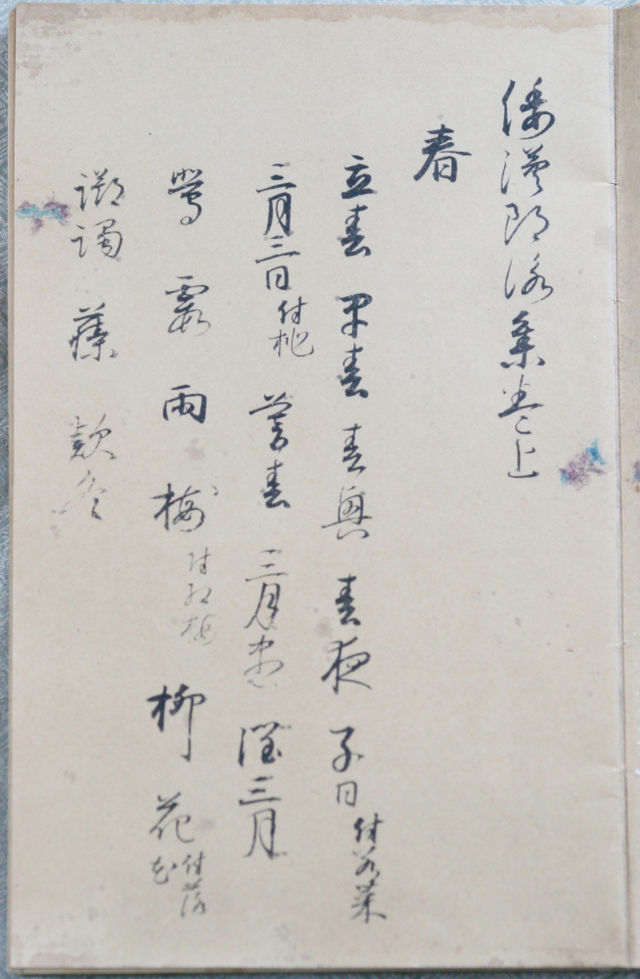 倭漢朗詠集巻上
春
立春 早春 春興 春夜 子日付若菜
三月三日付桃 暮春 三月尽 潤三月
鶯 霞 雨 梅付紅梅 柳 花付落花
躑躅 藤 款冬